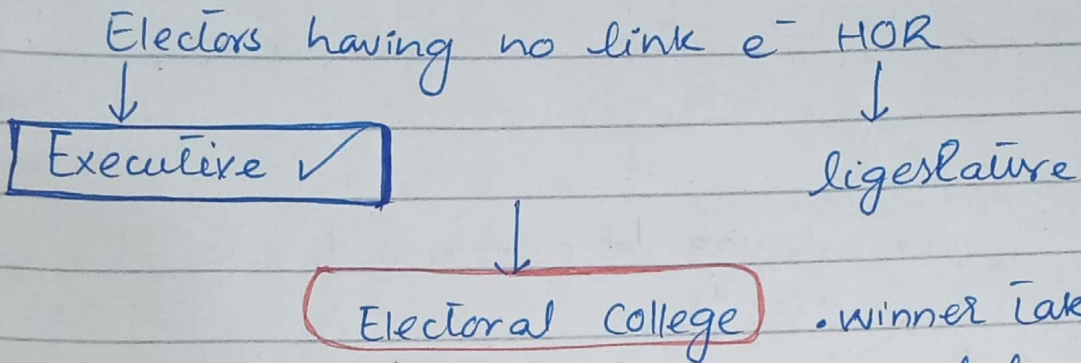 Electors having no link e⁻ HOR
↓ ↓
Executive ✓ ligeslature
↓
Electoral College . winner Tak